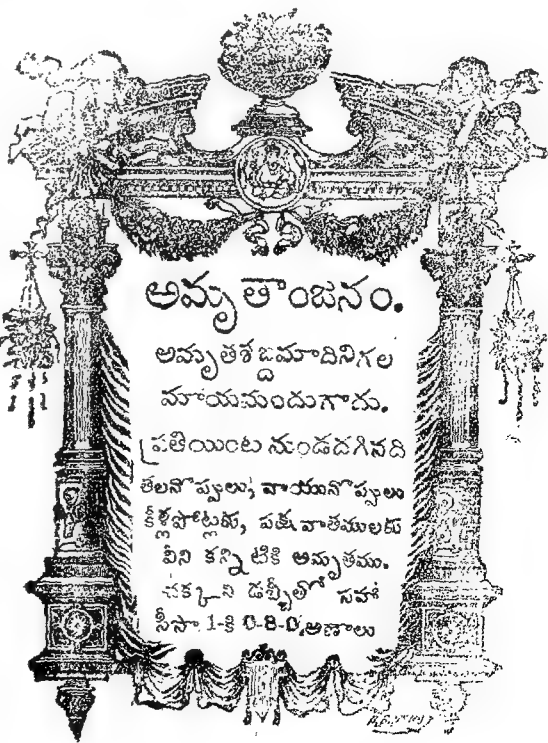 అమృతాంజనం.
అమృతశబ్దమాదినిగల
మాయమందుగాదు.
ప్రతియింట నుండదగినది
తలనొప్పులు, వాయునొప్పులు
కీళ్లపోట్లకు, పక్షవాతములకు
వీని కన్నిటికి అమృతము.
చక్కని డబ్బీతో సహా
సీసా 1-కి 0-8-0.అణాలు